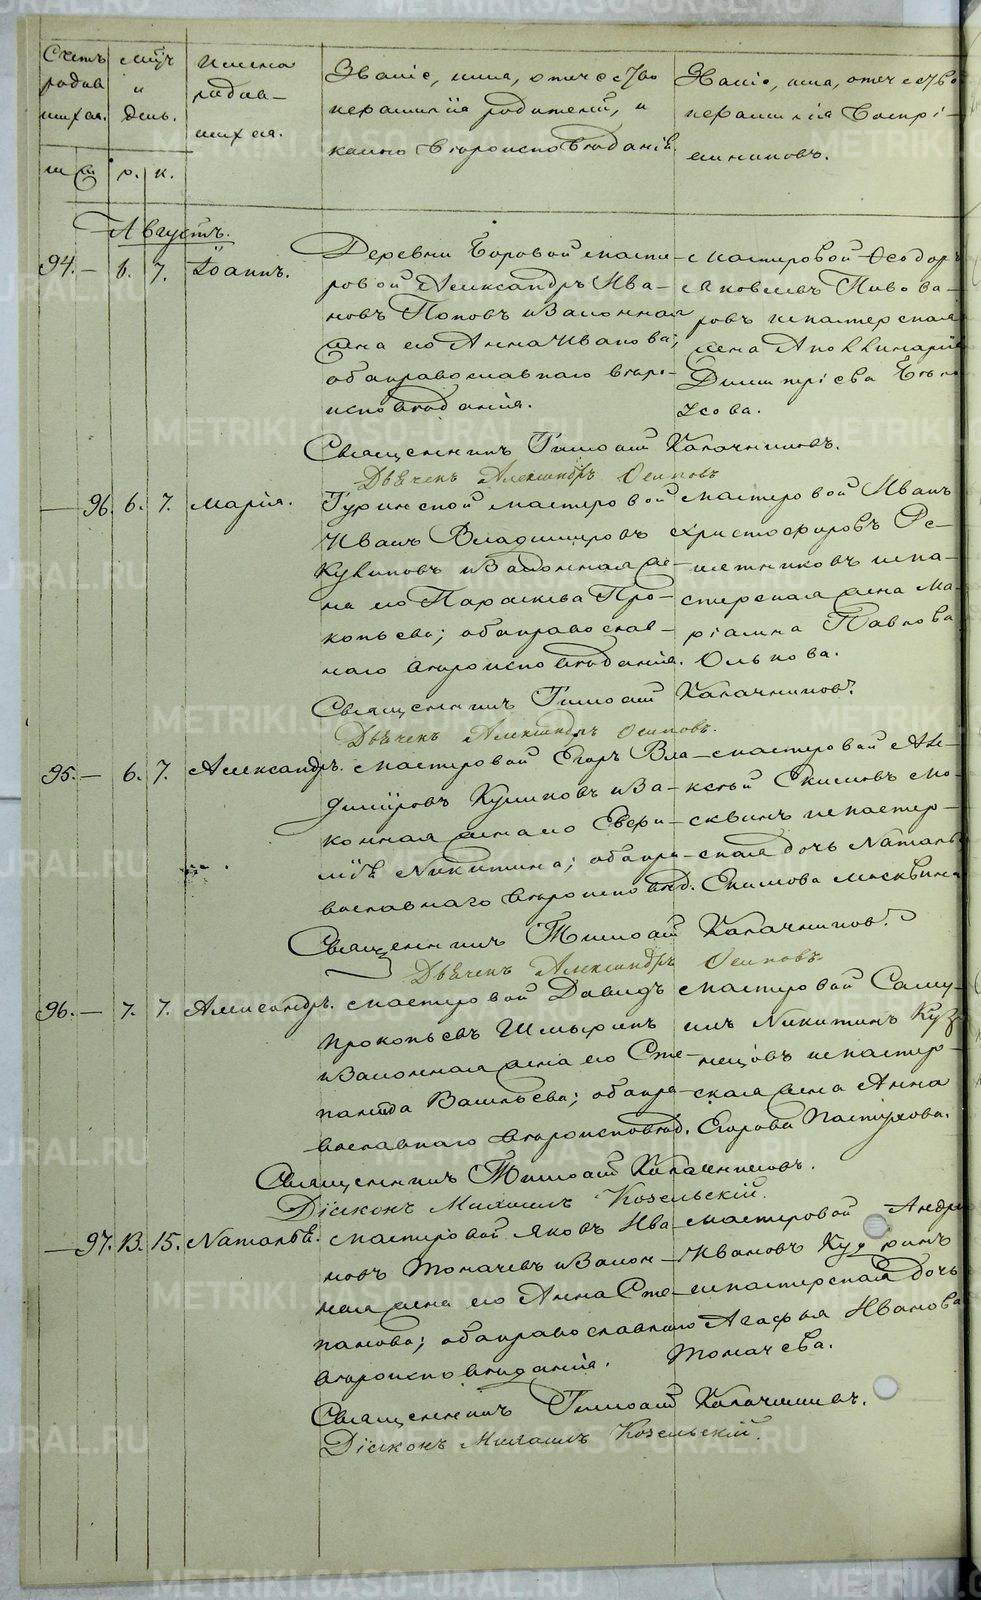 Счетъ родив шихся.
м. ж.
Мѣс. и день.
р. к.
Имена родив- шихся.
Званіе, имя, отечество и фамилія родителей, и какого вѣроисповѣданія.
Званіе, имя, отечество и фамилія воспрі- емниковъ.
Августъ.
94. — 6. 7. Іоаннъ.
Деревни Боровой масте-
ровой Александръ Ива-
новъ Поповъ и законная
жена его Анна Иванова;
оба православнаго вѣро-
исповѣданія.
мастеровой Ѳеодоръ
Яковлевъ Пивова-
ровъ и мастерская
жена Аполлинарія
Димитріева
Священникъ Тимоѳей Калачниковъ.
Дьячекъ Александръ Осиповъ
— 96. 6. 7. Марія.
Туринской мастеровой
Иванъ Владимировъ
Куликовъ и законная же-
на его Параскева Про-
копьева; оба православ-
наго вѣроисповѣданія.
мастеровой Иванъ
Христофоровъ Рѣ-
шетниковъ и ма-
стерская жена Ма-
ріамна Павлова
Олькова.
Священникъ Тимоѳей Калачниковъ.
Дьячекъ Александръ Осиповъ.
95. — 6. 7. Александръ.
мастеровой Егоръ Вла-
димировъ Куликовъ и за-
конная жена его Евфи-
мія Никитина; оба пра-
вославнаго вѣроисповѣд.
мастеровой Але-
ксѣй Екимовъ Мо-
сквинъ и мастер-
ская дочь Наталья
Екимова Москвина
Священникъ Тимоѳей Калачниковъ.
Дьячекъ Александръ Осиповъ
96. — 7. 7. Александръ.
мастеровой Давидъ
Прокопьевъ Шмыринъ
и законная жена его Сте-
панида Васильева; оба пра-
вославнаго вѣроисповѣд.
мастеровой Саму-
илъ Никитинъ Куз-
нецовъ и мастер-
ская жена Анна
Егорова Пастухова.
Священникъ Тимоѳей Калачниковъ.
Діаконъ Михаилъ Козельскій.
— 97. 13. 15. Наталья.
мастеровой Яковъ Ива-
новъ Томачевъ и закон-
ная жена его Анна Сте-
панова; оба православнаго
вѣроисповѣданія.
мастеровой Андрей
Ивановъ Кудринъ
и мастерская дочь
Агафья Иванова
Томачева.
Священникъ Тимоѳей Калачниковъ.
Діаконъ Михаилъ Козельскій.
METRIKI.GASO-URAL.RU